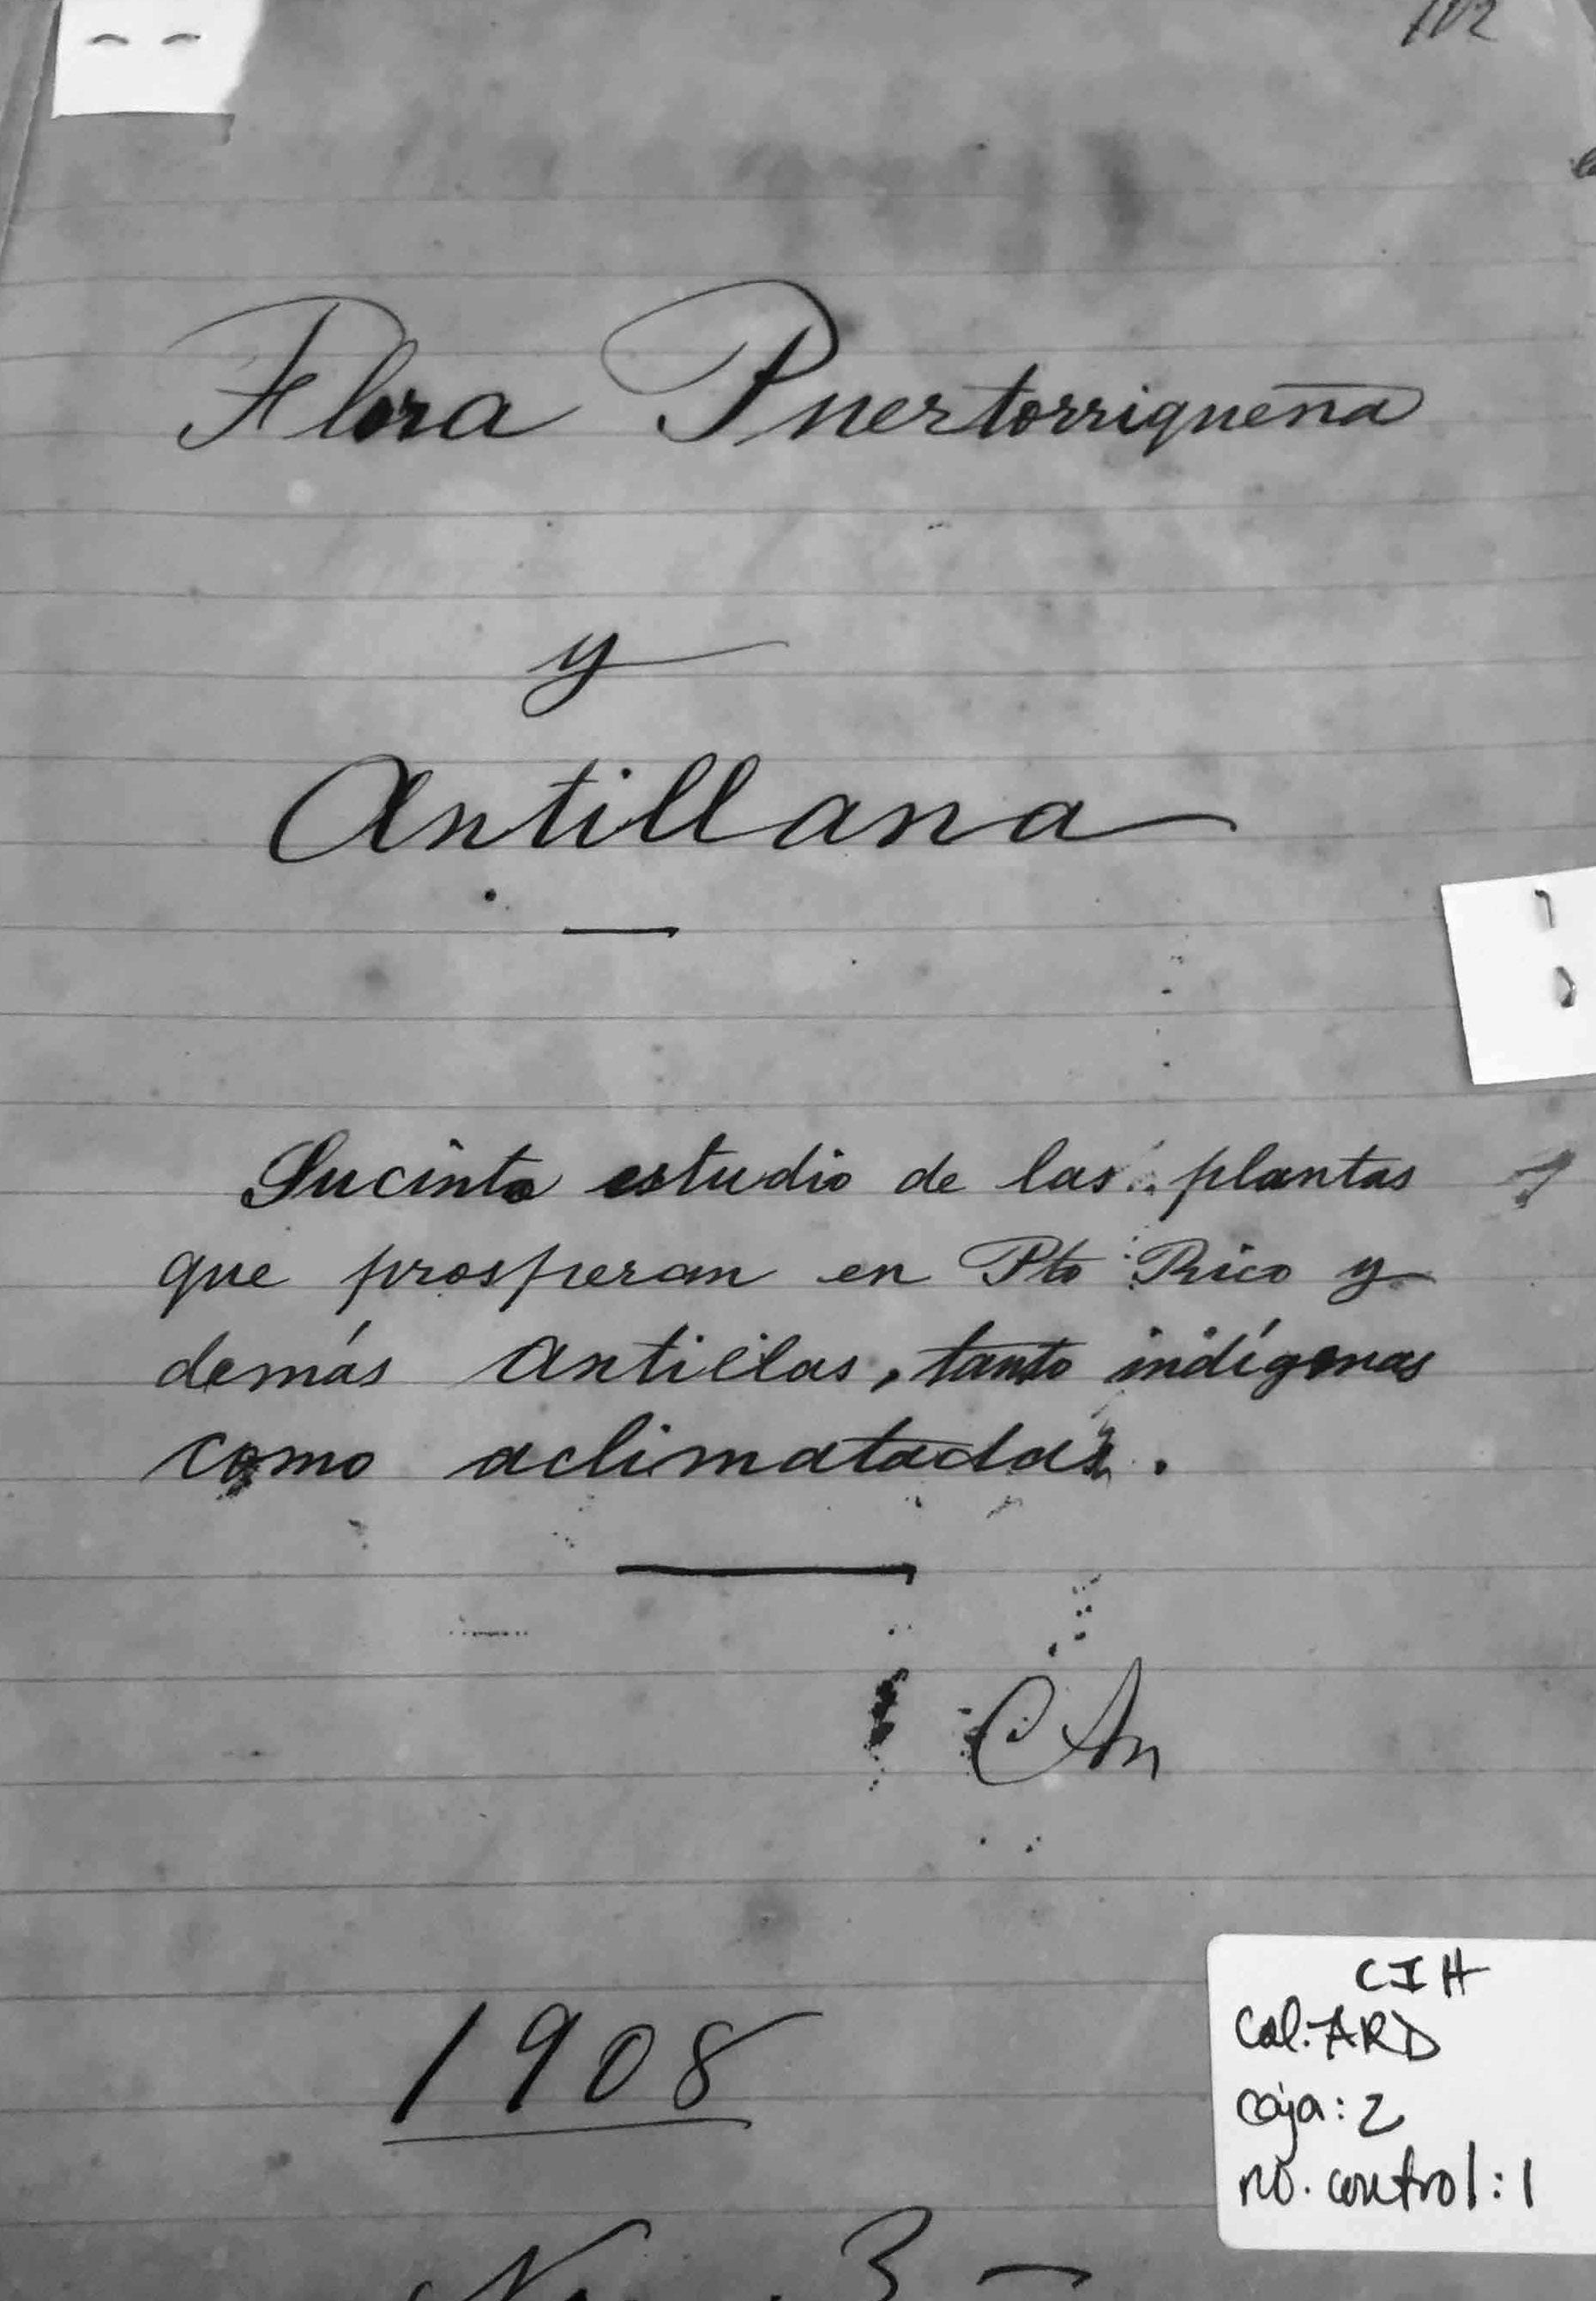 102
Flora Puertorriqueña
y
Antillana
Sucinto estudio de las plantas
que prosperan en Pto Rico y
demás Antillas, tanto indígenas
como aclimatadas.
1908
CIH
Col. ARD
caja: 2
no. control: 1
3